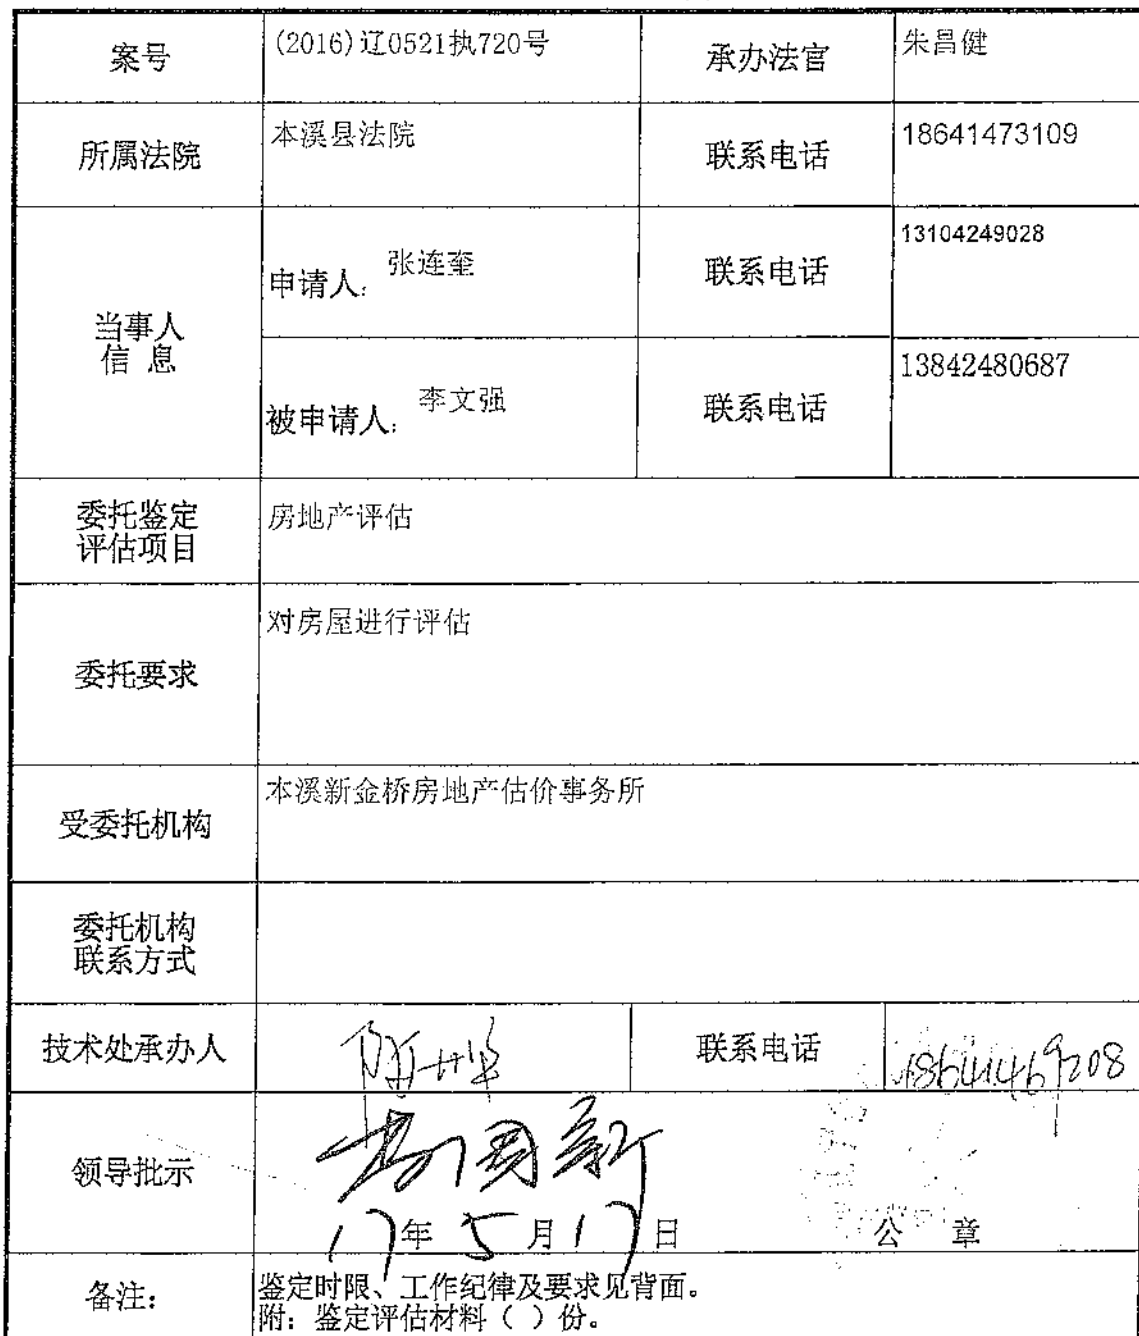 案号 (2016)辽0521执720号 承办法官 朱昌健
所属法院 本溪县法院 联系电话 18641473109
当事人
信 息
申请人: 张连奎 联系电话 13104249028
被申请人: 李文强 联系电话 13842480687
委托鉴定
评估项目
房地产评估
委托要求 对房屋进行评估
受委托机构 本溪新金桥房地产估价事务所
委托机构
联系方式
技术处承办人 联系电话 18641469208
领导批示 国新
17年 5月17日 公 章
备注: 鉴定时限、工作纪律及要求见背面。
附: 鉴定评估材料( )份。